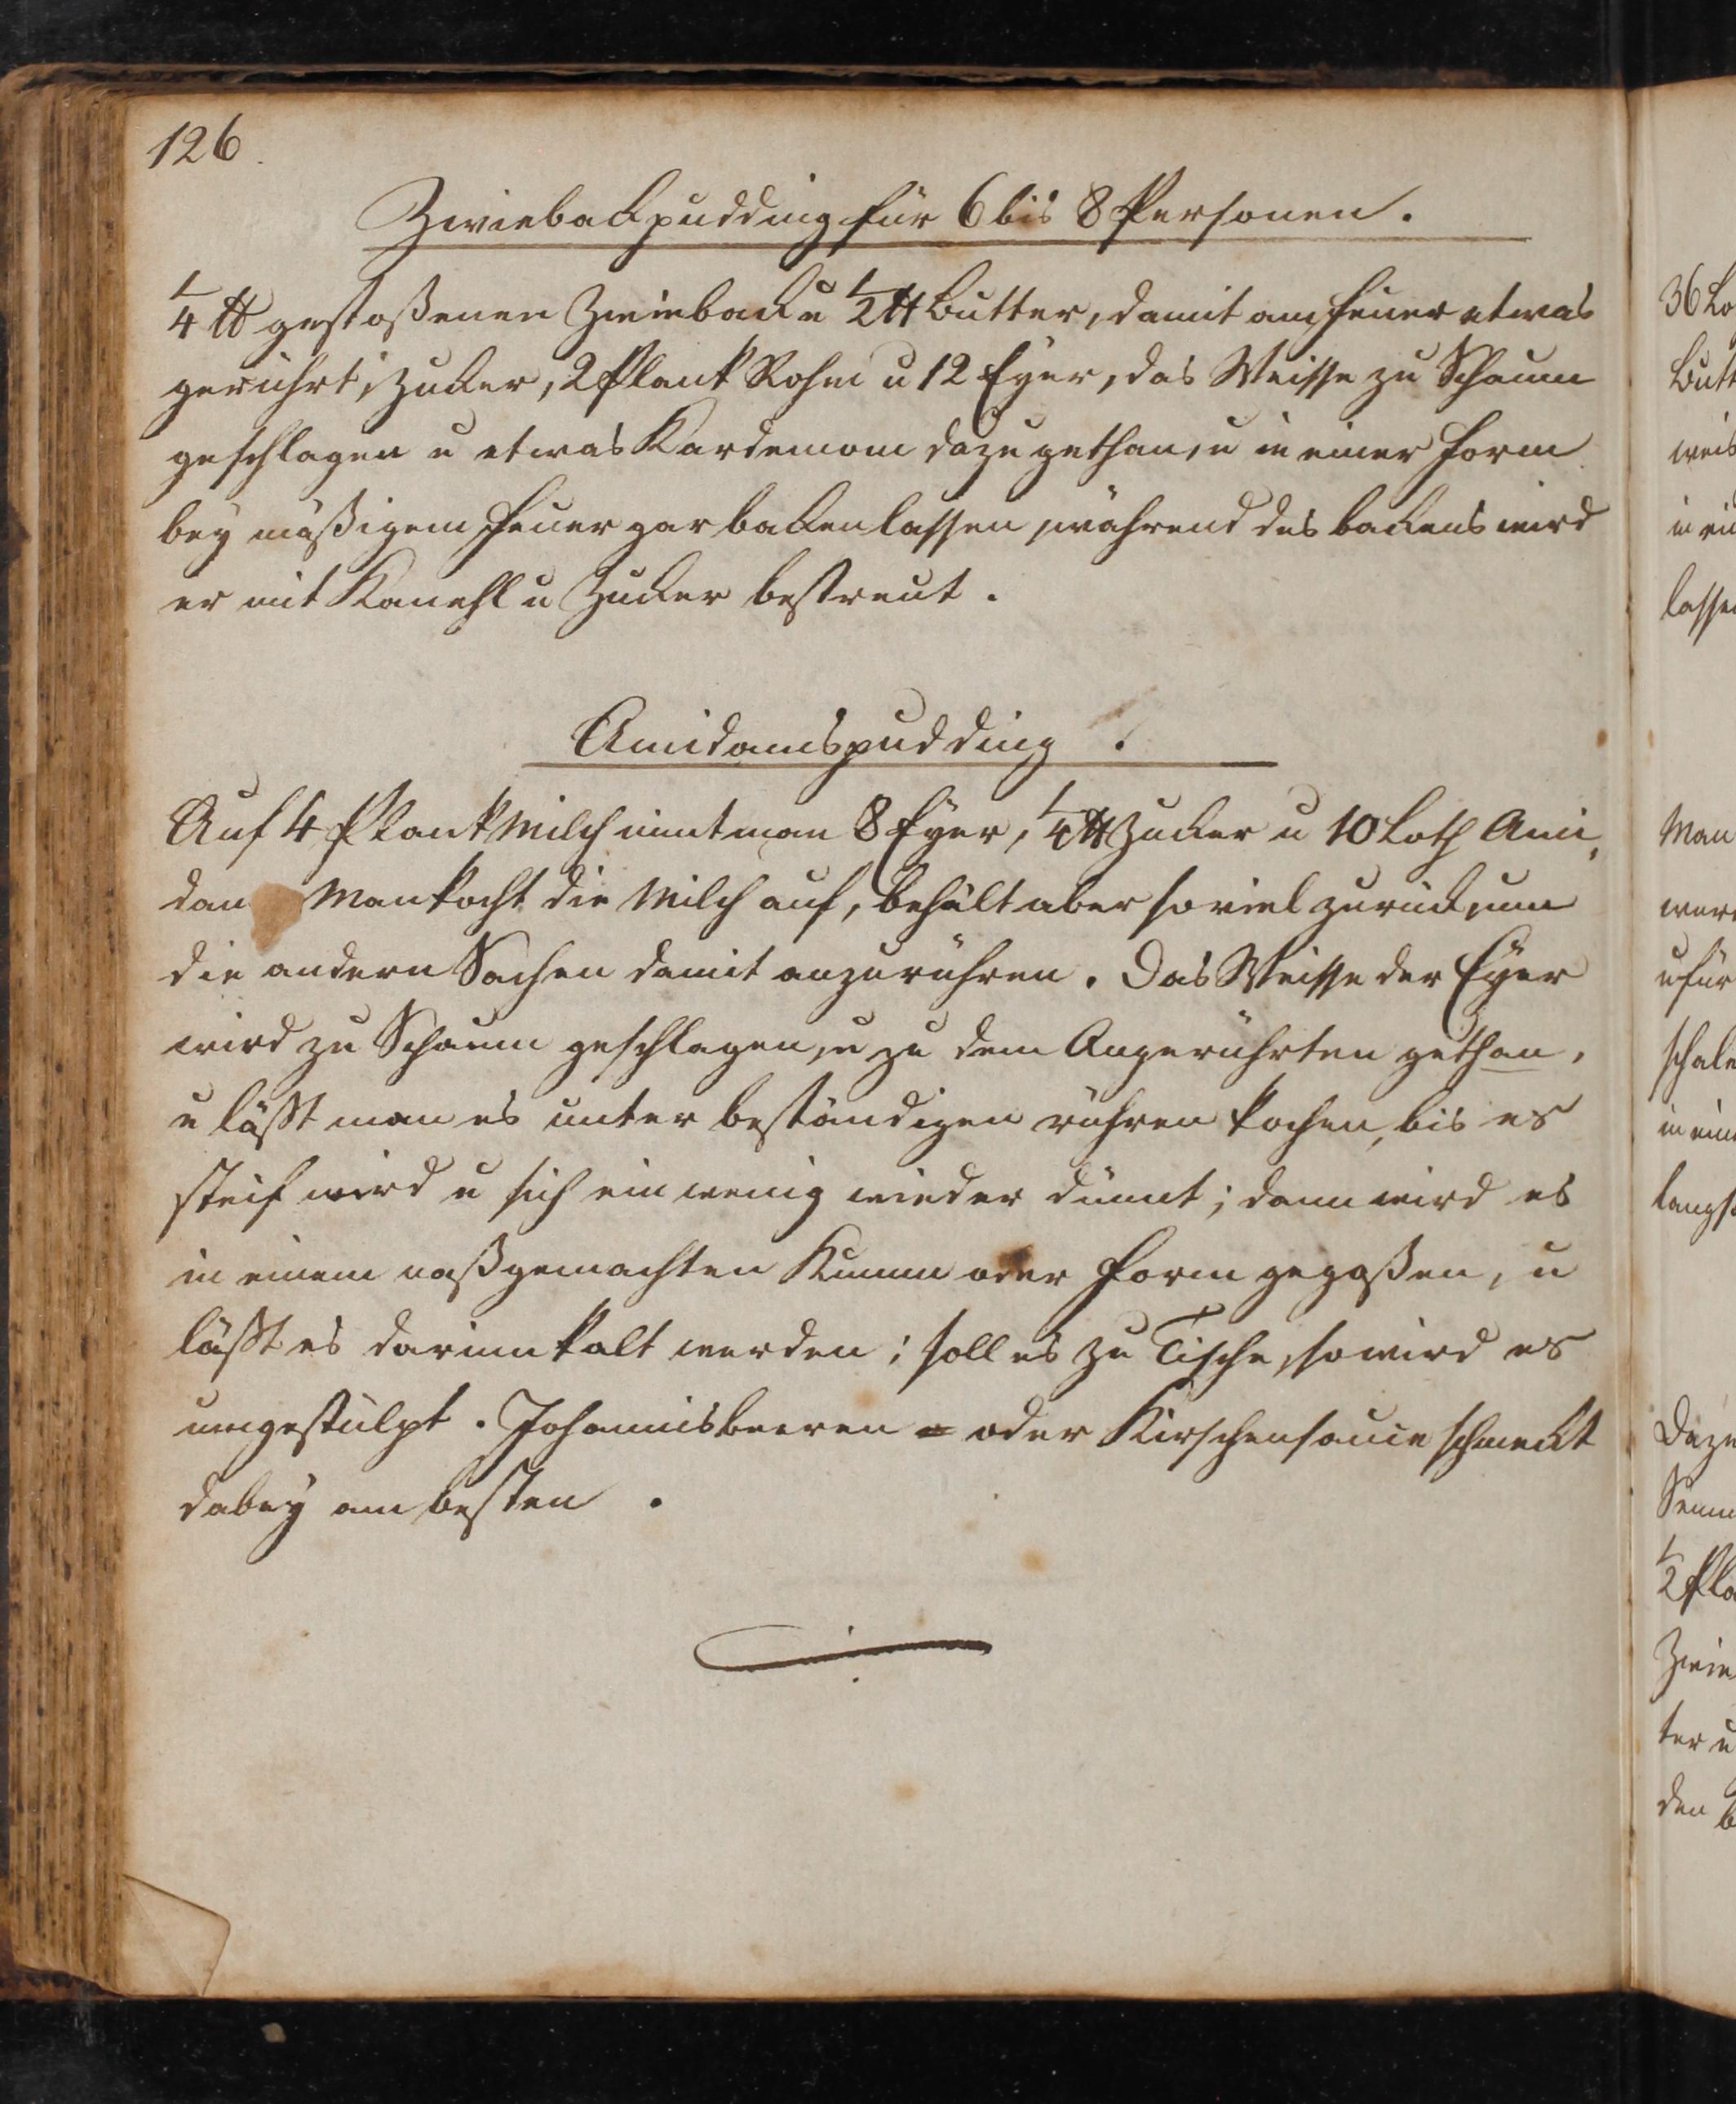 126.
Zwiebackpudding für 6 bis 8 Personen.
1/4 ℔ gestoßenen Zwieback u 1/2 ℔ Butter, damit am Feuer etwas
gerührt, Zucker, 2 Plank Rohm u 12 Eyer, das Weisse zu Schaum
geschlagen u etwas Kardemom dazu gethan, u in einer Form
bey mäßigem Feuer gar backen lassen, während des backens wird
er mit Kanehl u Zucker bestreut.
Amidamspudding.
Auf 4 Plank Milch nimt man 8 Eyer, 1/4 ℔ Zucker u 10 Loth Ami„
dam Man kocht die Milch auf, behält aber so viel zurück, um
die andern Sachen damit anzurühren. Das Weisse der Eyer
wird zu Schaum geschlagen, u zu dem Angerührten gethan,
u läßt man es unter beständigen rühren kochen, bis es
steif wird u sich ein wenig wieder dünnt; dann wird es
in einem naßgemachten Kumm oder Form gegoßen, u
läßt es darinn kalt werden; soll es zu Tische, so wird es
umgestülpt. Johannisbeeren = oder Kirschensauce schmeckt
dabey am besten.
36 Lo
Butt
weis
in ein
lassen
Man
werd
u für
schale
in eine
langs
Dazu
Semm
1/2 Pla
Zwie
ter u
den b